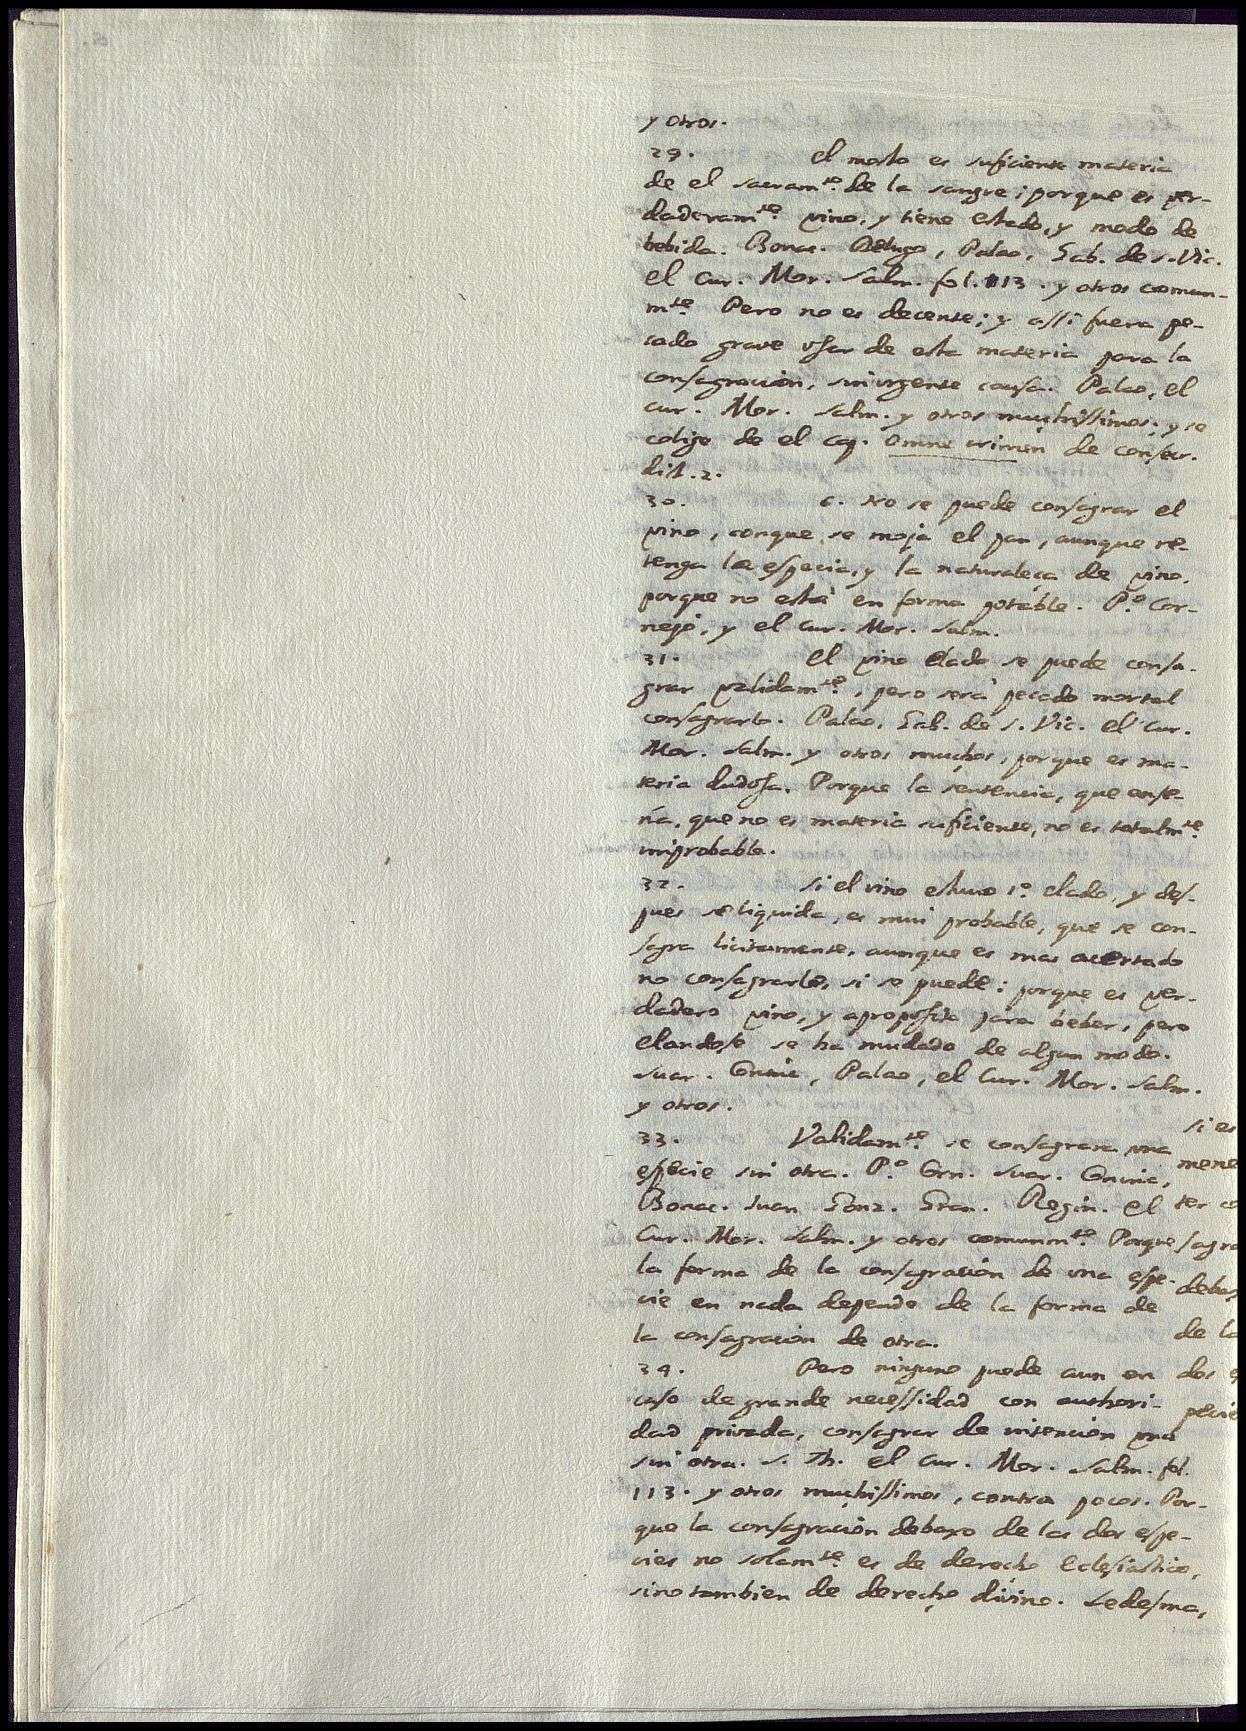 y otros.
29. El mosto es suficiente materia
de el sacram.to de la sangre; porque es ver-
daderam.te vino, y tiene estado, y modo de
bebida. Bonac. Delugo, Palao, Gab. de S. Vic.
el Cur. Mor. Salm. fol. 113. y otros comun-
m.te Pero no es decente; y assi fuera pe-
cado grave usar de esta materia para la
consagracion, sin urgente causa. Palao, el
Cur. Mor. Salm. y otros muchissimos; y se
colige de el cap. Omne crimen de consecr.
dist. 2.
30. 6. No se puede consagrar el
vino, conque se moja el pan, aunque re-
tenga la especia, y la naturaleça de vino,
porque no està en forma potable. P.o Cor-
nejo, y el Cur. Mor. Salm.
31. El vino elado se puede consa-
grar validam.te, pero serà pecado mortal
consagrarlo. Palao, Gab. de S. Vic. el Cur.
Mor. Salm. y otros muchos, porque es ma-
teria dudosa. Porque la sentencia, que ense-
ña, que no es materia suficiente, no es totalm.te
improbable.
32. Si el vino estuvo 1.o elado, y des-
pues se liquida, es mui probable, que se con-
sagra licitamente, aunque es mas acertado
no consagrarlo, si se puede: porque es ver-
dadero vino, y aproposito para beber, pero
elandose se ha mudado de algun modo.
Suar. Palao, el Cur. Mor. Salm.
y otros.
33. Validam.te se consagrara una
especie sin otra. P.o Suar.
Bonac. Juan Gonz. Gran. Regin. el
Cur. Mor. Salm. y otros comunm.te Porque
la forma de la consagracion de una espe-
cie en nada depende de la forma de
la consagracion de otra.
34. Pero ninguno puede aun en
caso de grande necessidad con authori-
dad privada, consagrar de intencion una
sin otra. S. Th. el Cur. Mor. Salm. fol.
113. y otros muchissimos, contra pocos. Por-
que la consagracion debaxo de las dos espe-
cies no solam.te es de derecho Eclesiastico,
sino tambien de derecho divino. Ledesma,
si es
mene
ter co
sagra
debax
de la
dos es
pecie